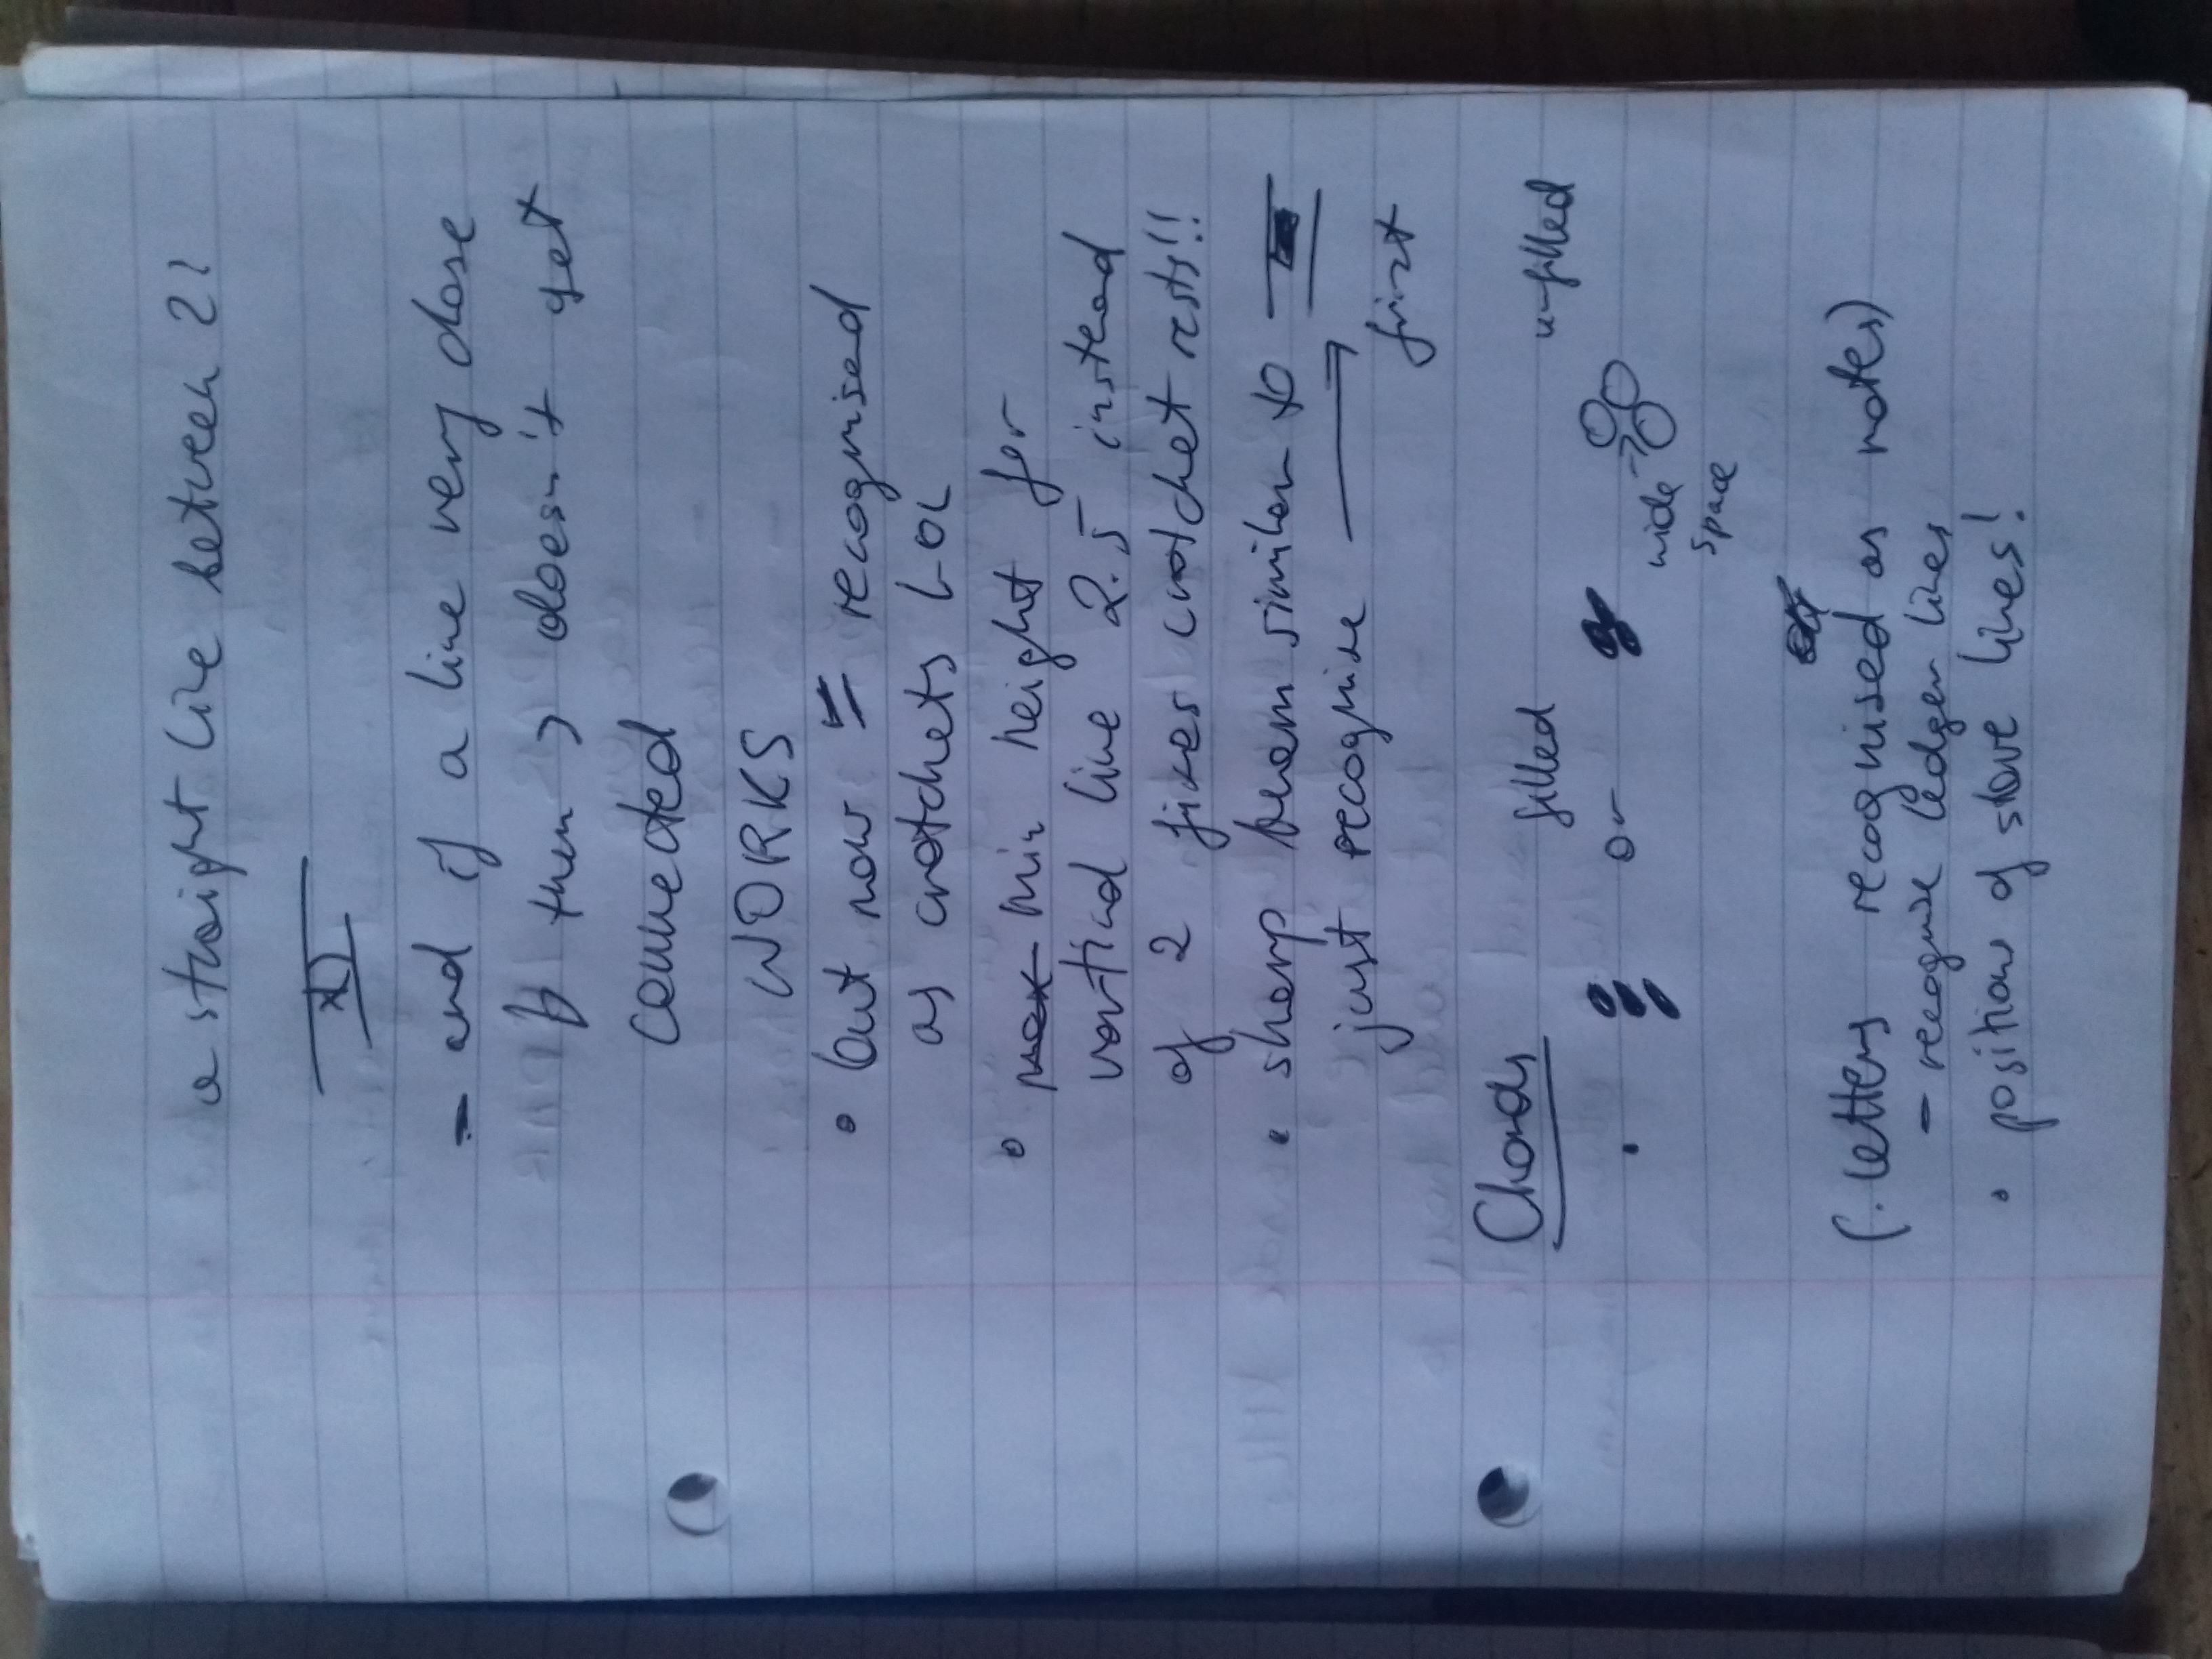 a straight line between 2?
- and if a line very close
then doesn't get
connected
WORKS
• but now = recognised
as crotchets LOL
• max min height for
vertical line 2.5 instead
of 2 fixes crotchet rests!!
• sharp beam similar to
just recognise →
first
Chords
filled unfilled
• or
wide
space
(• letters recognised as notes)
- recognise ledger lines
• positions of stave lines!